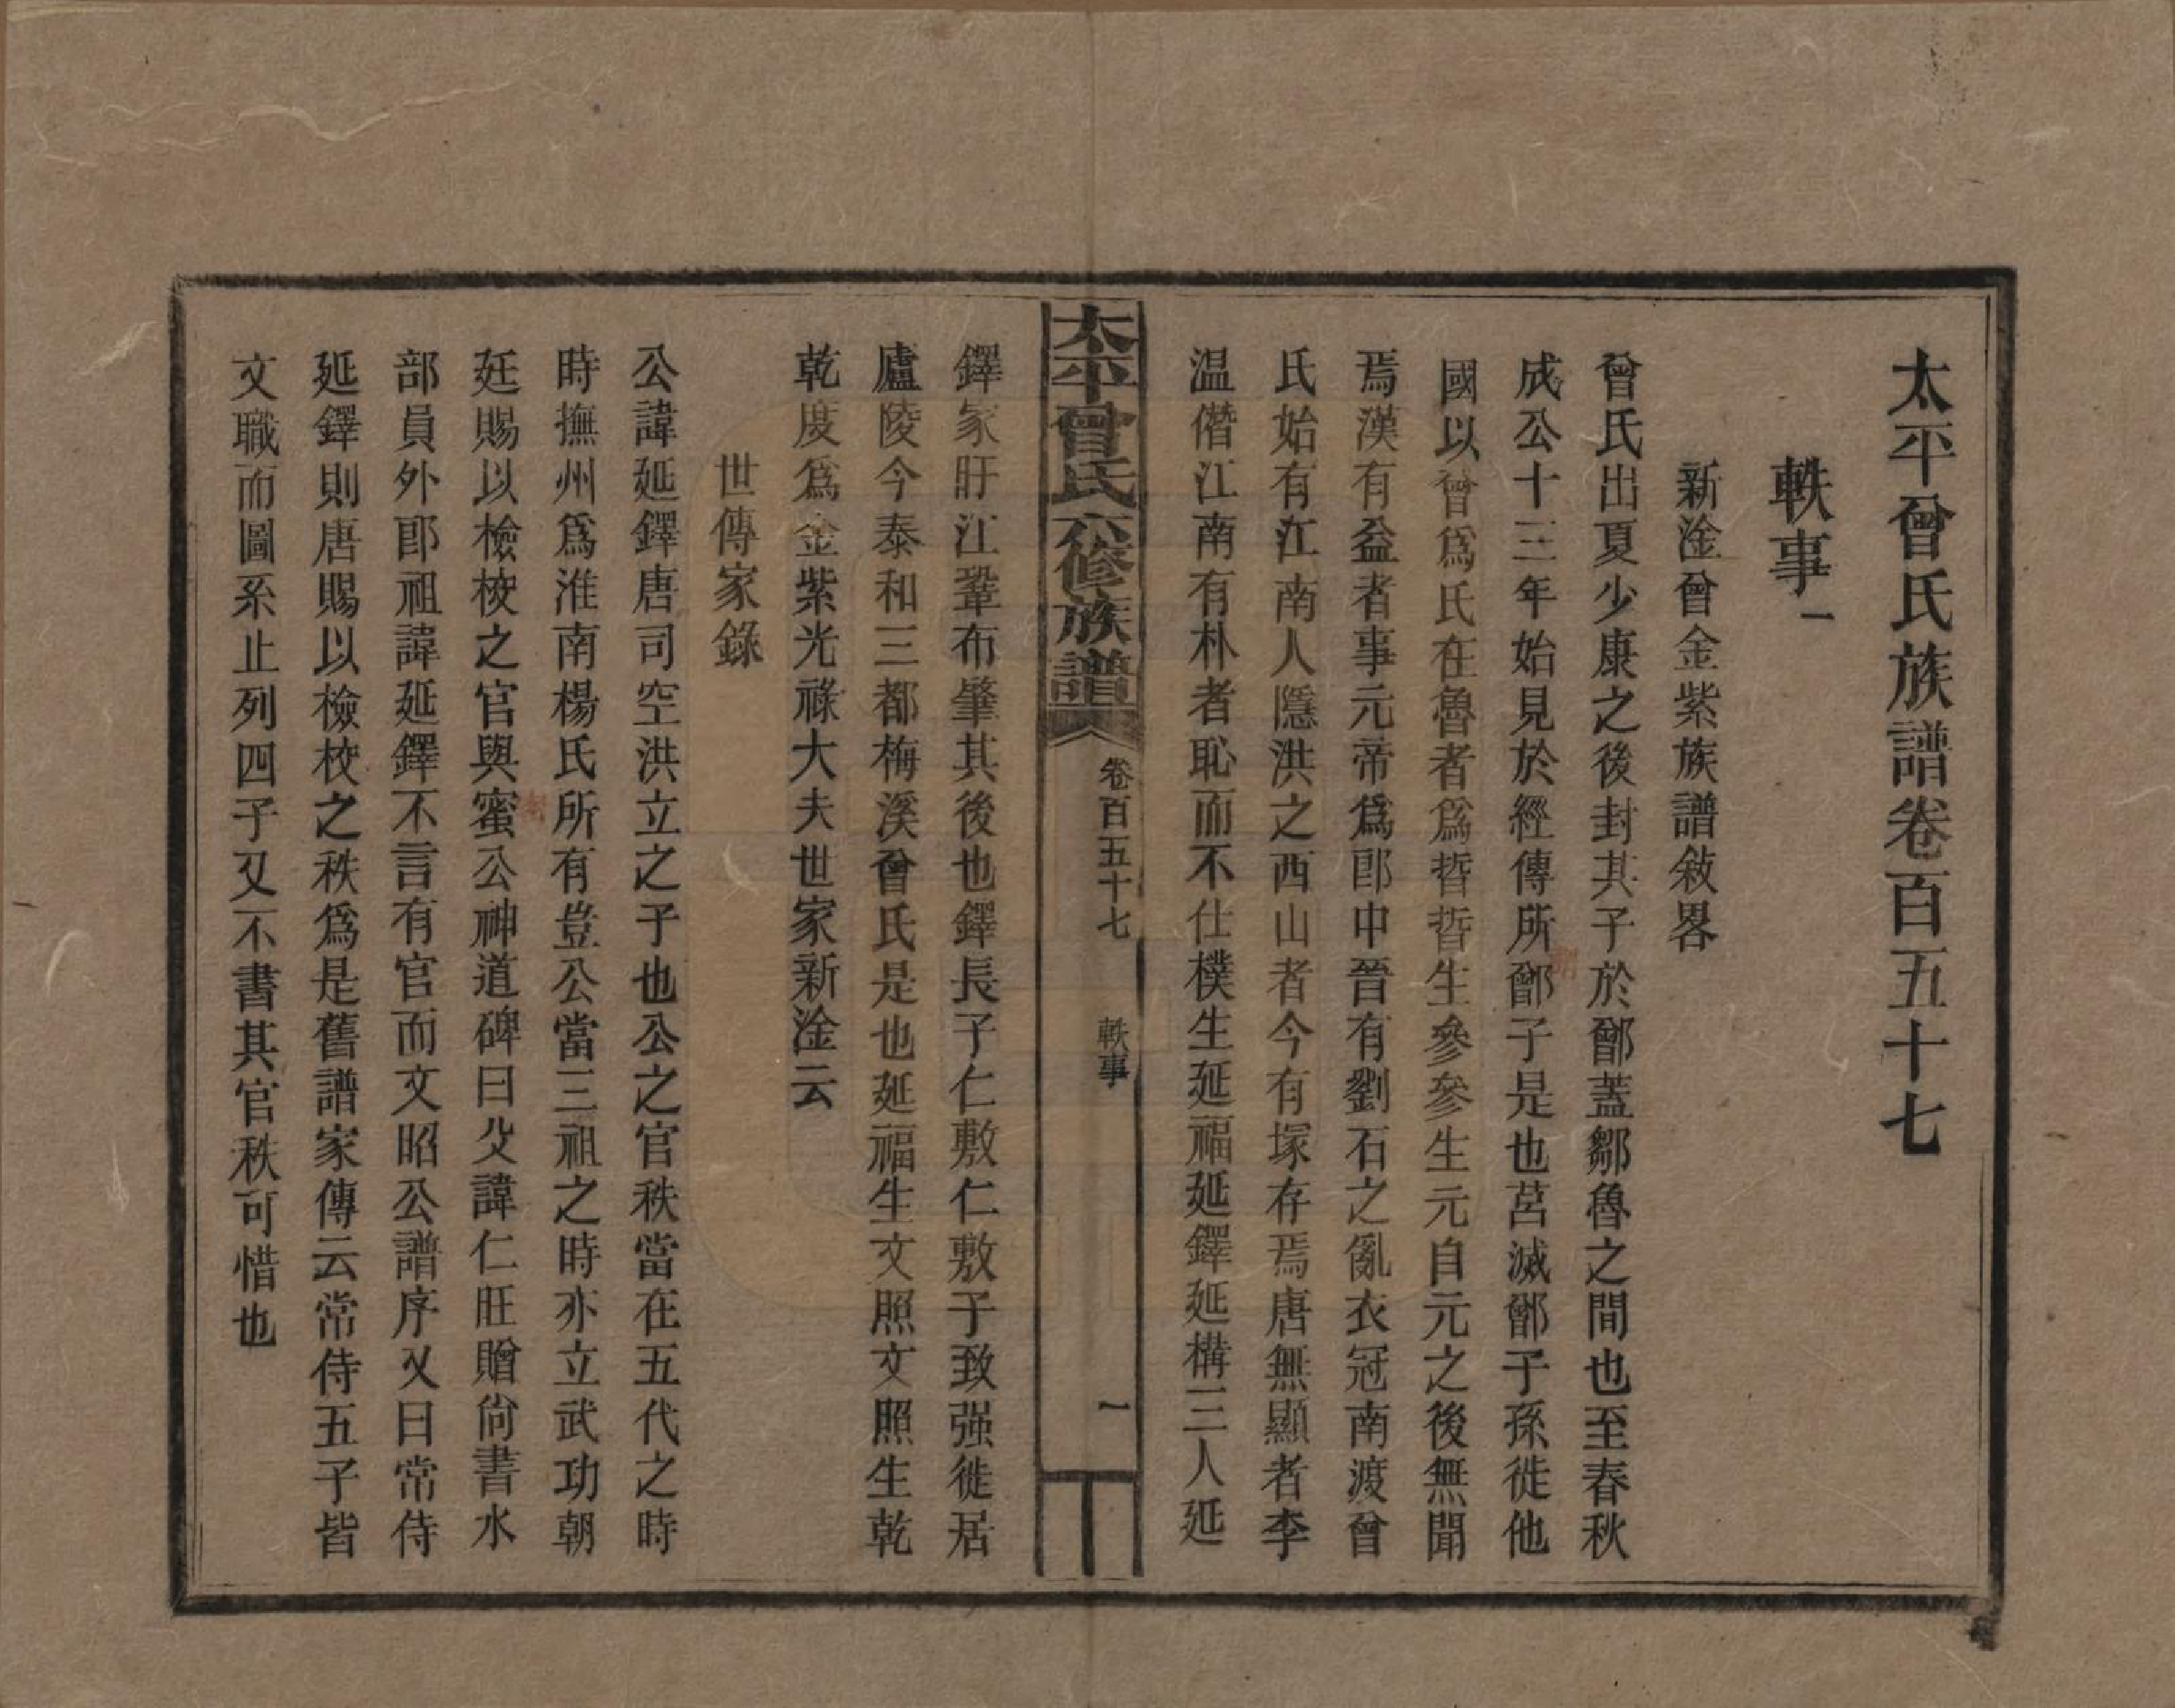 太平曾氏族譜卷百五十七
軼事一
新淦曾金紫族譜敘畧
曾氏出夏少康之後封其子於鄫蓋鄒魯之間也至春秋
成公十三年始見於經傳所鄫子是也莒滅鄫子孫徙他
國以曾爲氏在魯者爲晳晳生參參生元自元之後無聞
焉漢有益者事元帝爲郎中晉有劉石之亂衣冠南渡曾
氏始有江南人隱洪之西山者今有塚存焉唐無顯者李
温僭江南有朴者恥而不仕樸生延福延鐸延構三人延
鐸家盱江鞏布肇其後也鐸長子仁敷仁敷子致强徙居
廬陵今泰和三都梅溪曾氏是也延福生文照文照生乾
乾度爲金紫光祿大夫世家新淦云
世傳家錄
公諱延鐸唐司空洪立之子也公之官秩當在五代之時
時撫州爲淮南楊氏所有豈公當三祖之時亦立武功朝
廷賜以檢校之官與蜜公神道碑曰父諱仁旺贈尙書水
部員外郎祖諱延鐸不言有官而文昭公譜序又曰常侍
延鐸則唐賜以檢校之秩爲是舊譜家傳云常侍五子皆
文職而圖系止列四子又不書其官秩可惜也
太平曾氏六修族譜
卷百五十七
軼事
一